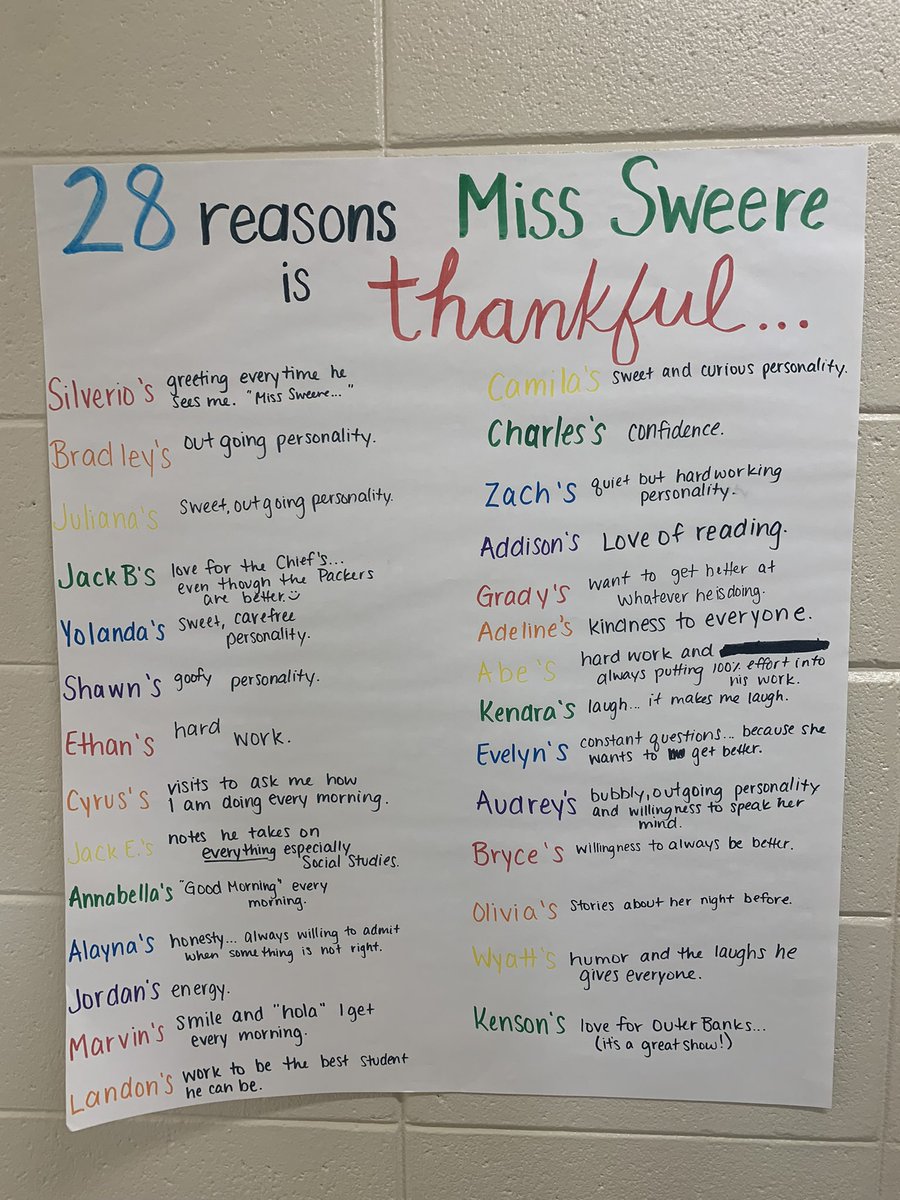 28 reasons Miss Sweere
is thankful...
Silverio's greeting everytime he
sees me. "Miss Sweere..."
Bradley's out going personality.
Juliana's Sweet, out going personality.
Jack B's love for the Chief's...
even though the Packers
are better.
Yolanda's sweet, carefree
personality.
Shawn's goofy personality.
Ethan's hard
work.
Cyrus's visits to ask me how
I am doing every morning.
Jack E.'s notes he takes on
everything especially
Social Studies.
Annabella's "Good Morning" every
morning.
Alayna's honesty... always willing to admit
when something is not right.
Jordan's energy.
Marvin's smile and "hola" I get
every morning.
Landon's work to be the best student
he can be.
Camila's sweet and curious personality.
Charles's confidence.
Zach's quiet but hardworking
personality.
Addison's Love of reading.
Grady's want to get better at
whatever he is doing.
Adeline's kindness to everyone.
Abe's hard work and
always putting 100% effort into
his work.
Kendra's laugh... it makes me laugh.
Evelyn's constant questions... because she
wants to get better.
Audrey's bubbly, outgoing personality
and willingness to speak her
mind.
Bryce's willingness to always be better.
Olivia's Stories about her night before.
Wyatt's humor and the laughs he
gives everyone.
Kenson's love for Outer Banks...
(it's a great show!)